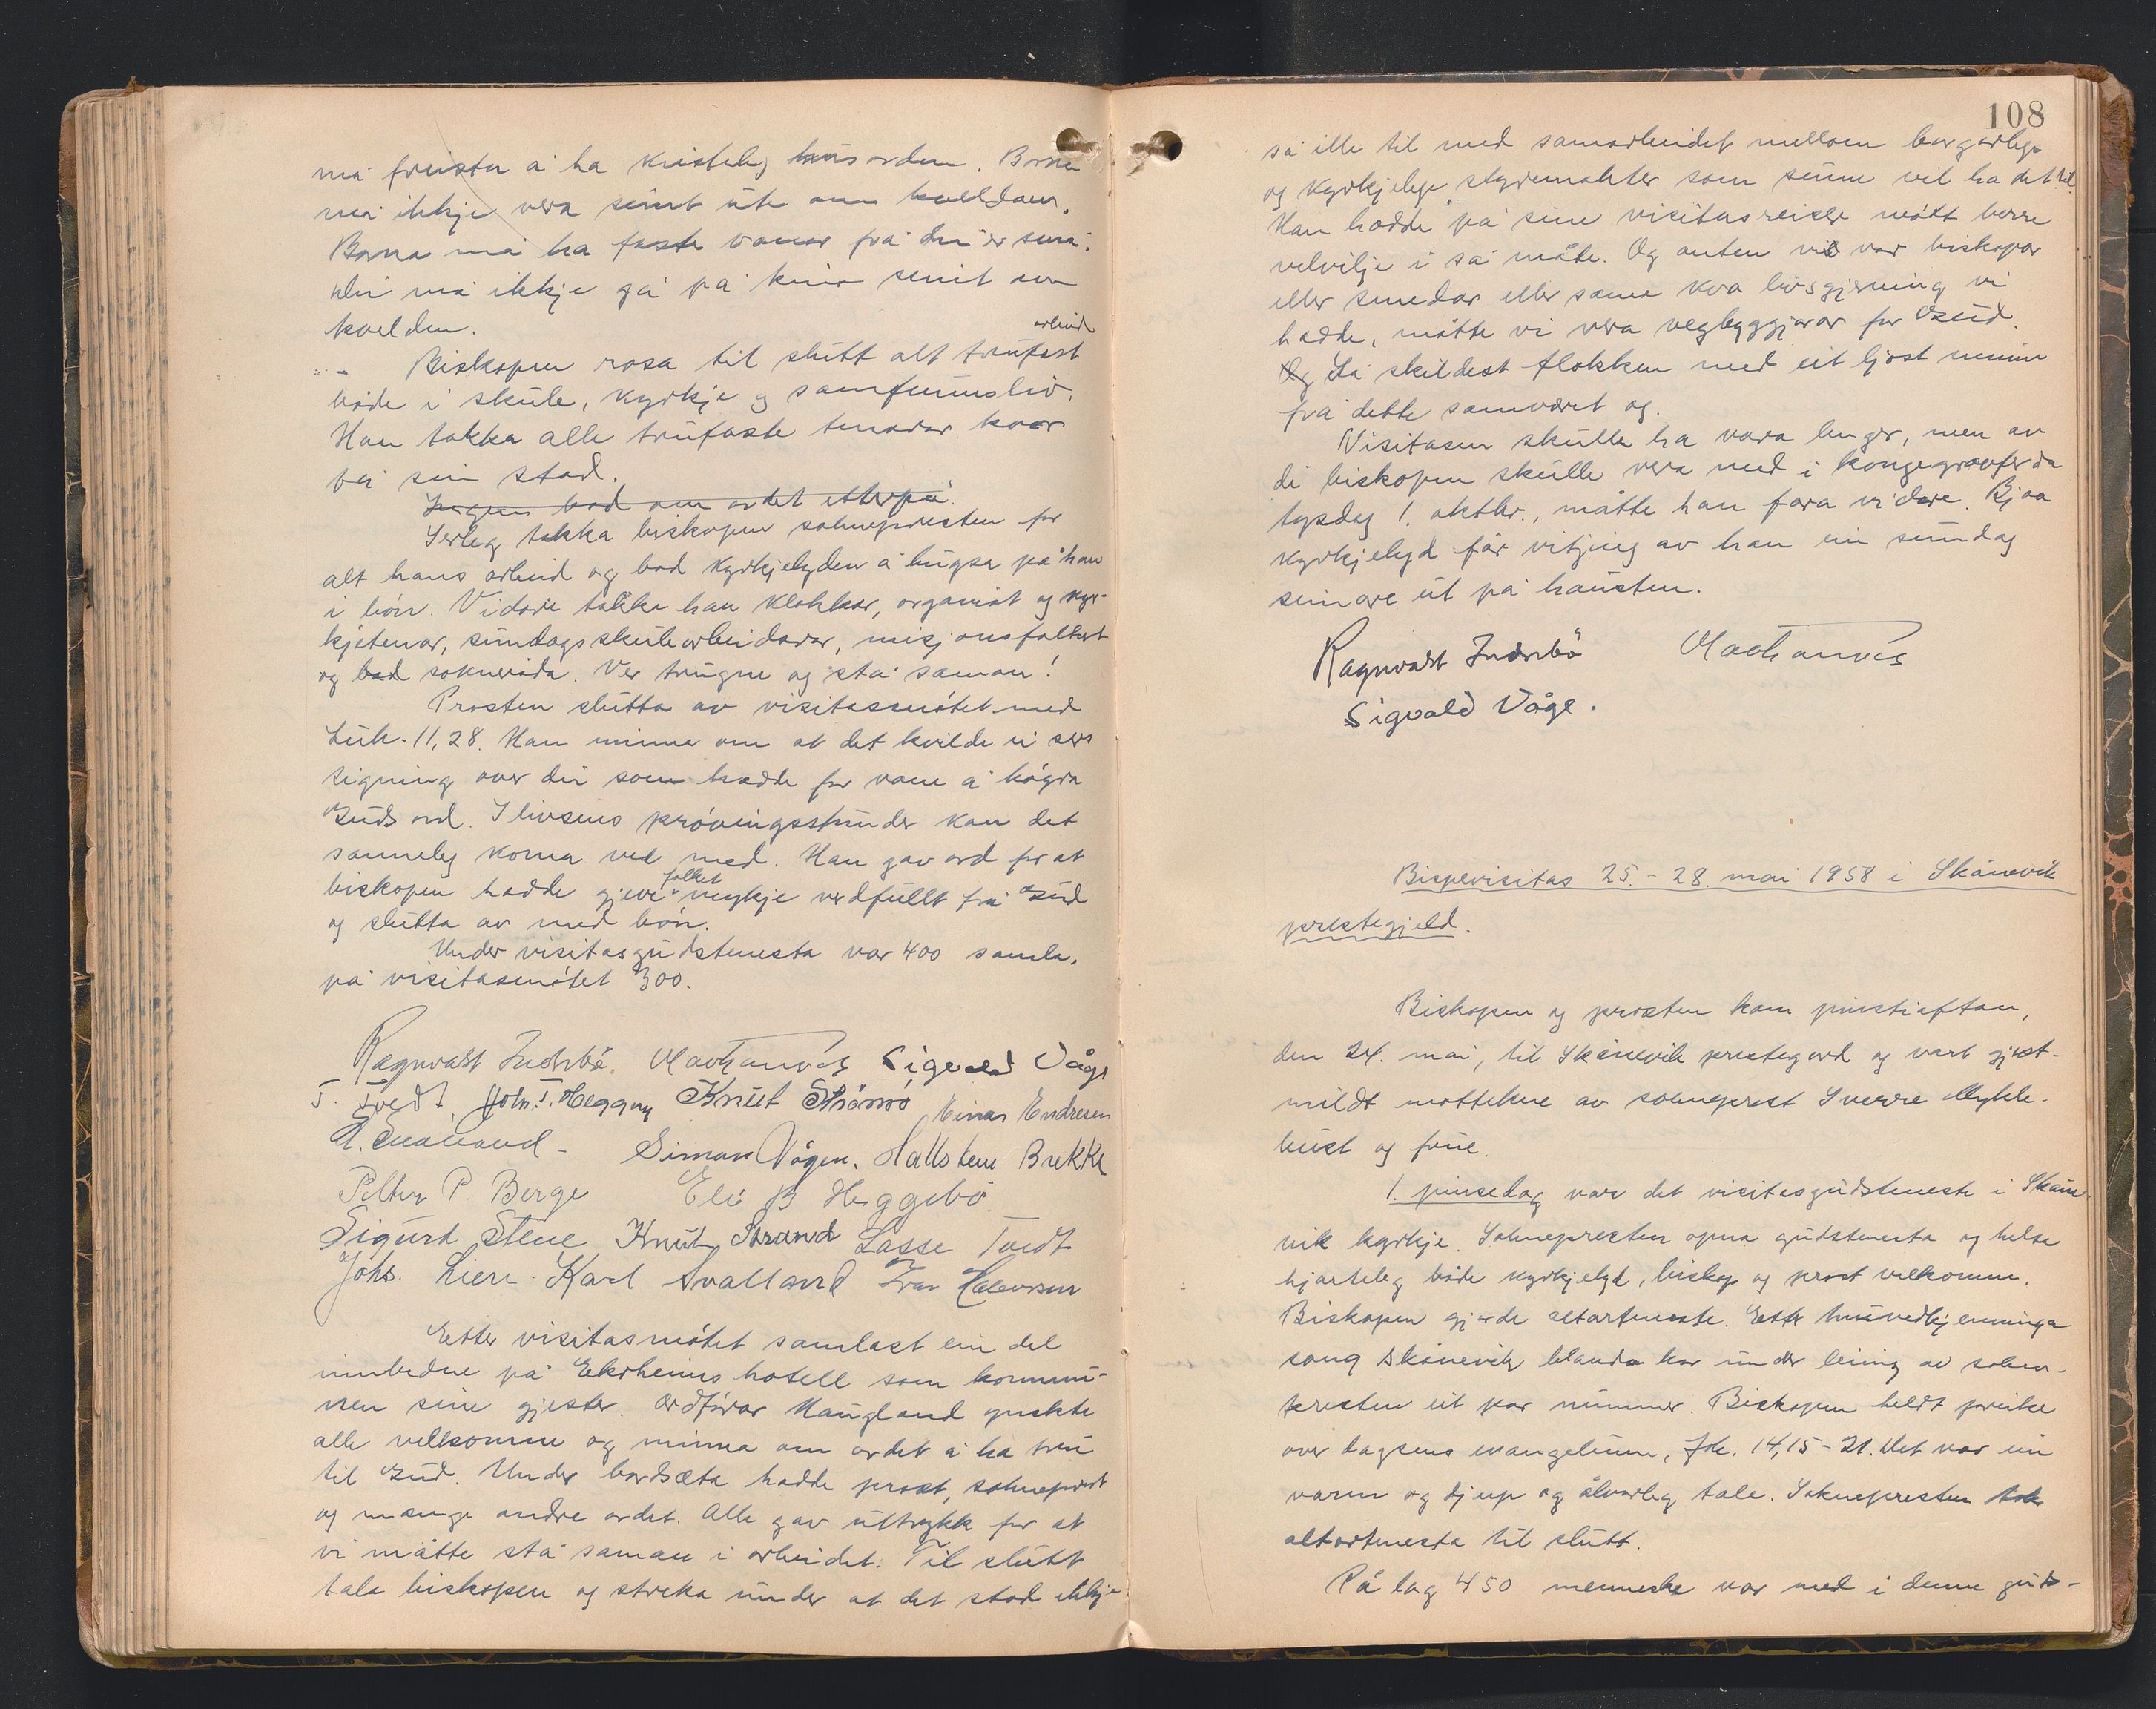 må freista å ha kristeleg husorden. Borna
må ikkje vera seint ute om kveldane.
Borna må ha faste vanar frå dei er små.
Dei må ikkje gå på kino seint om
kvelden.
Biskopen rosa til slutt alt trufast arbeid
både i skule, kyrkje og samfunnsliv.
Han takka alle trufaste tenarar kvar
på sin stad.
Ingen bad om ordet etterpå.
Serleg takka biskopen soknepresten for
alt hans arbeid og bad kyrkjelyden å hugsa på han
i bøn. Vidare takka han klokkar, organist og kyr-
kjetenar, sundagsskulearbeidarar, misjonsfolket
og bad sokneråda. Ver trugne og stå saman!
Prosten slutta av visitasmøtet med
Luk. 11,28. Han minna om at det kvilde ei sers
signing over dei som hadde for vane å høyra
Guds ord. I livsens prøvingsstunder kan det
sanneleg koma vel med. Han gav ord for at
biskopen hadde gjeve folket mykje verdfullt frå Gud
og slutta av med bøn.
Under visitasgudstenesta var 400 samla,
på visitasmøtet 300.
Ragnvald Indrebö. Sigvald Våge
T. Tvedt. Joh. T. Heggøy Knut Strömö Einar Endresen
Simon Vågen. Hallstein Brekke
Petter P. Berge Eli B Heggebö
Sigurd Stene Knut Strand Lasse Tvedt
Johs. Lien. Karl Svalland Ivar Halvorsen
Etter visitasmøtet samlast ein del
innbedne på Eikrheims hotell som kommu-
nen sine gjester. Ordførar Haugland ynskte
alle velkomne og minna om ordet å ha tru
til Gud. Under bordsæta hadde prost, sokneprest
og mange andre ordet. Alle gav uttrykk for at
vi måtte stå saman i arbeidet. Til slutt
tala biskopen og streka under at det stod ikkje
108
så ille til med samarbeidet mellom borgarlege
og kyrkjelege styremakter som sume vil ha det til.
Han hadde på sine visitasreiser møtt berre
velvilje i så måte. Og anten vi var biskopar
eller smedar eller same kva livsgjerning vi
hadde, måtte vi vera vegbyggjarar for Gud.
Og Så skildest flokken med eit ljost minne
frå dette samværet og.
Visitasen skulle ha vara lenger, men av
di biskopen skulle vera med i kongegravferda
tysdag 1. oktbr., måtte han fara vidare. Bjoa
kyrkjelyd får vitjing av han ein sundag
seinare ut på hausten.
Ragnvald Indrebö
Sigvald Våge.
Bispevisitas 25. - 28. mai 1958 i Skånevik
prestegjeld.
Biskopen og prosten kom pinstiaftan,
den 24. mai, til Skånevik prestegard og vart gjest-
mildt mottekne av sokneprest Sverre Mykle-
bust og frue.
1. pinsedag var det visitasgudsteneste i Skåne-
vik kyrkje. Soknepresten opna gudstenesta og helsa
hjarteleg både kyrkjelyd, biskop og prost velkomne.
Biskopen gjorde altarteneste. Etter truvedkjenninga
song Skånevik blanda kor under leiing av sokne-
presten eit par nummer. Biskopen heldt preike
over dagsens evangelium, Joh. 14,15-21. Det var ein
varm og djup og ålvorleg tale. Soknepresten tok
altartenesta til slutt.
På lag 450 menneske var med i denne guds-